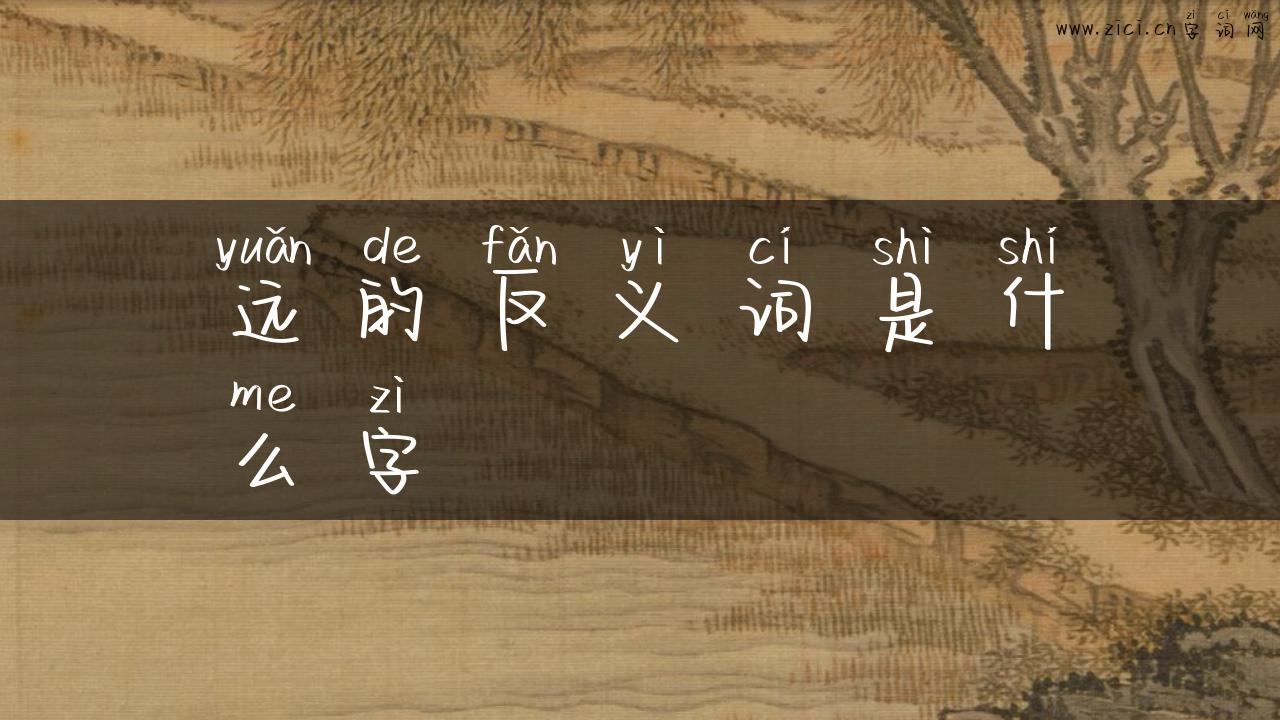 zì cí wǎng
www.zici.cn字词网
yuǎn de fǎn yì cí shì shí
远的反义词是什
me zì
么字